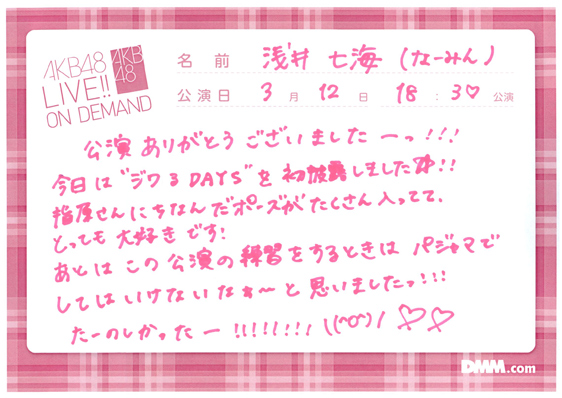 AKB48
LIVE!!
ON DEMAND
AKB
48
名前 浅井 七海 (なーみん)
公演日 3月 12日 18:30 公演
公演 ありがとう ございました ーっ!!!
今日は"ジワるDAYS"を 初披露しました!!
指原さんにちなんだポーズがたくさん入ってて、
とっても 大好き です!
あとは この 公演の 練習をするときは パジャマで
してはいけないなぁ〜と 思いましたっ!!!
たーのしかったー!!!!!!!! \(^o^)/ ♡♡
DMM.com